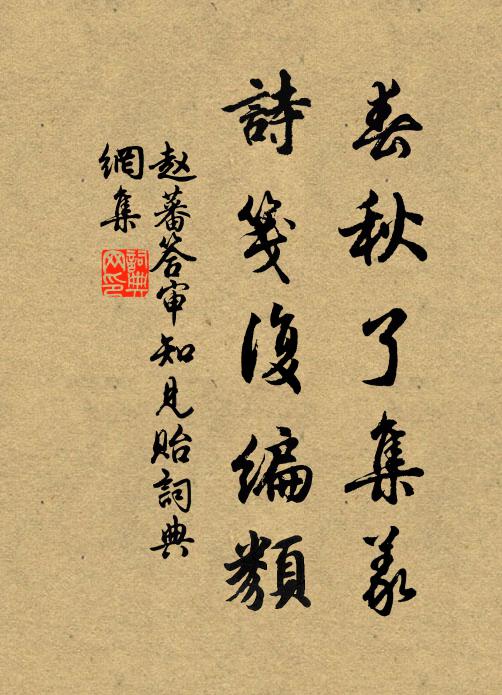 春秋了集义
詩笺復編類
赵蕃答审知見贻詞典
網集
詞典
网印